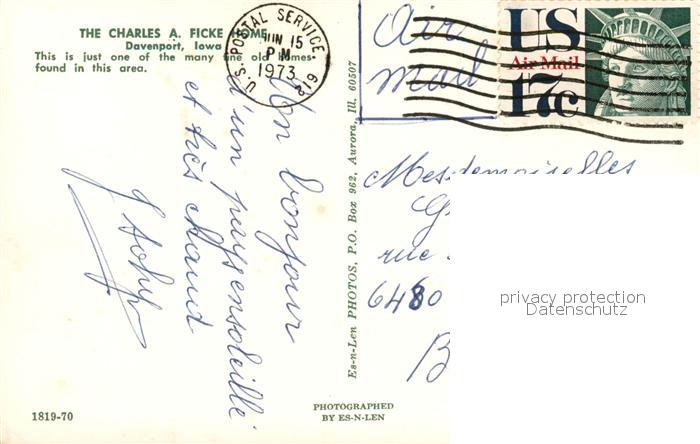 THE CHARLES A. FICKE HOME
Davenport, Iowa
This is just one of the many fine old homes
found in this area.
U.S. POSTAL SERVICE
JUN 15
PM
1973
612
Air
mail
US
Air Mail
17c
Un bonjour
d'un pays ensoleillé
et très chaud
Es-n-Len PHOTOS, P.O. Box 962, Aurora, Ill. 60507
Mesdemoiselles
rue
6480
B
privacy protection
Datenschutz
1819-70
PHOTOGRAPHED
BY ES-N-LEN